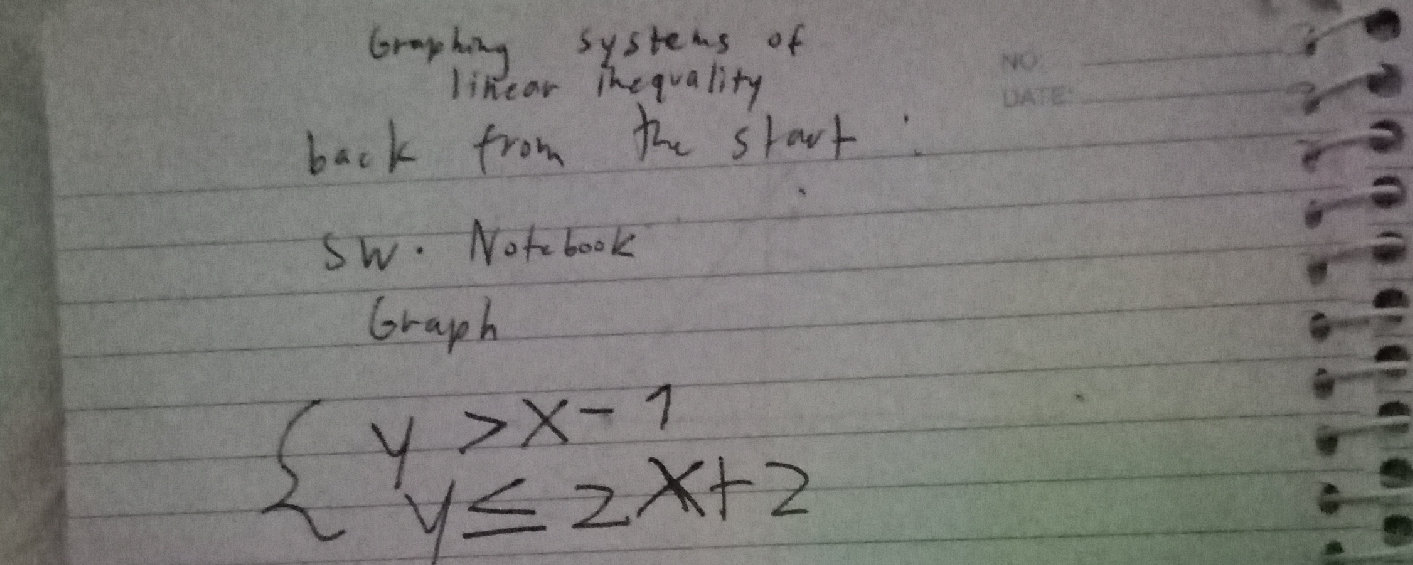 Graphing systems of
linear inequality
NO:
DATE:
back from the start :
SW. Notebook
Graph
{ y > x - 1
y ≤ 2x + 2